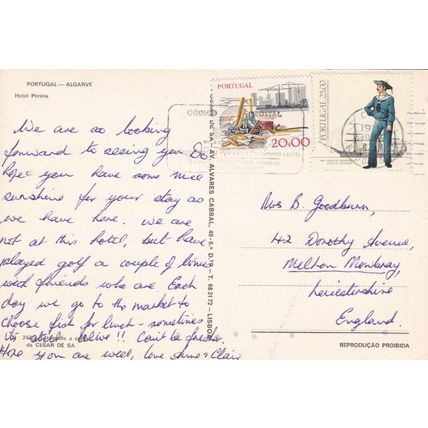 PORTUGAL — ALGARVE
Hotel Penina
We are so looking
forward to seeing you. Do
hope you have some nice
sunshine for your stay as
we have here. We are
not at this hotel, but have
played golf a couple of times
with friends who are. Each
day we go to the market to
choose fish for lunch - sometimes
its still alive!! Can't be fresher.
Hope you are well, love Clair
de CESAR DE SA
AV. ALVARES CABRAL, 40-5.º D.to - T. 683172 - LISBO
PORTUGAL
20.00
PORTUGAL 25.00
POSTAL
Mrs B. Goodburn,
42 Dorothy Avenue,
Melton Mowbray,
Leicestershire
England.
REPRODUÇÃO PROIBIDA